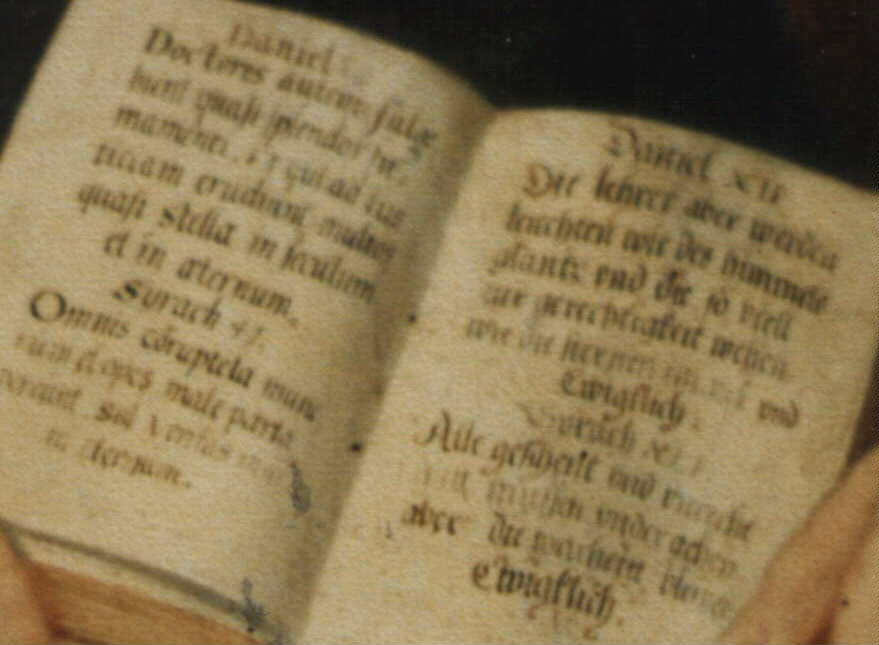 Daniel
Doctores autem fulge
bunt quasi splendor fir,
mamenti, et qui ad ius
ticiam erudiunt multos
quasi Stella in seculum
et in æternum.
Syrach 41.
Omnis corruptela mune
rum et opes male parta
pereunt, Sol Veritas
in æternum.
Daniel XII
Die lehrer aber werden
leuchten wie des himmels
glantz vnd die so viell
zur gerechtigkeit weisen
wie die sternen vnd
Ewigklich.
Syrach XLI
Alle geschenk vnd vnrecht
müssen vndergehen
aber die warheit bleibt
Ewigklich.